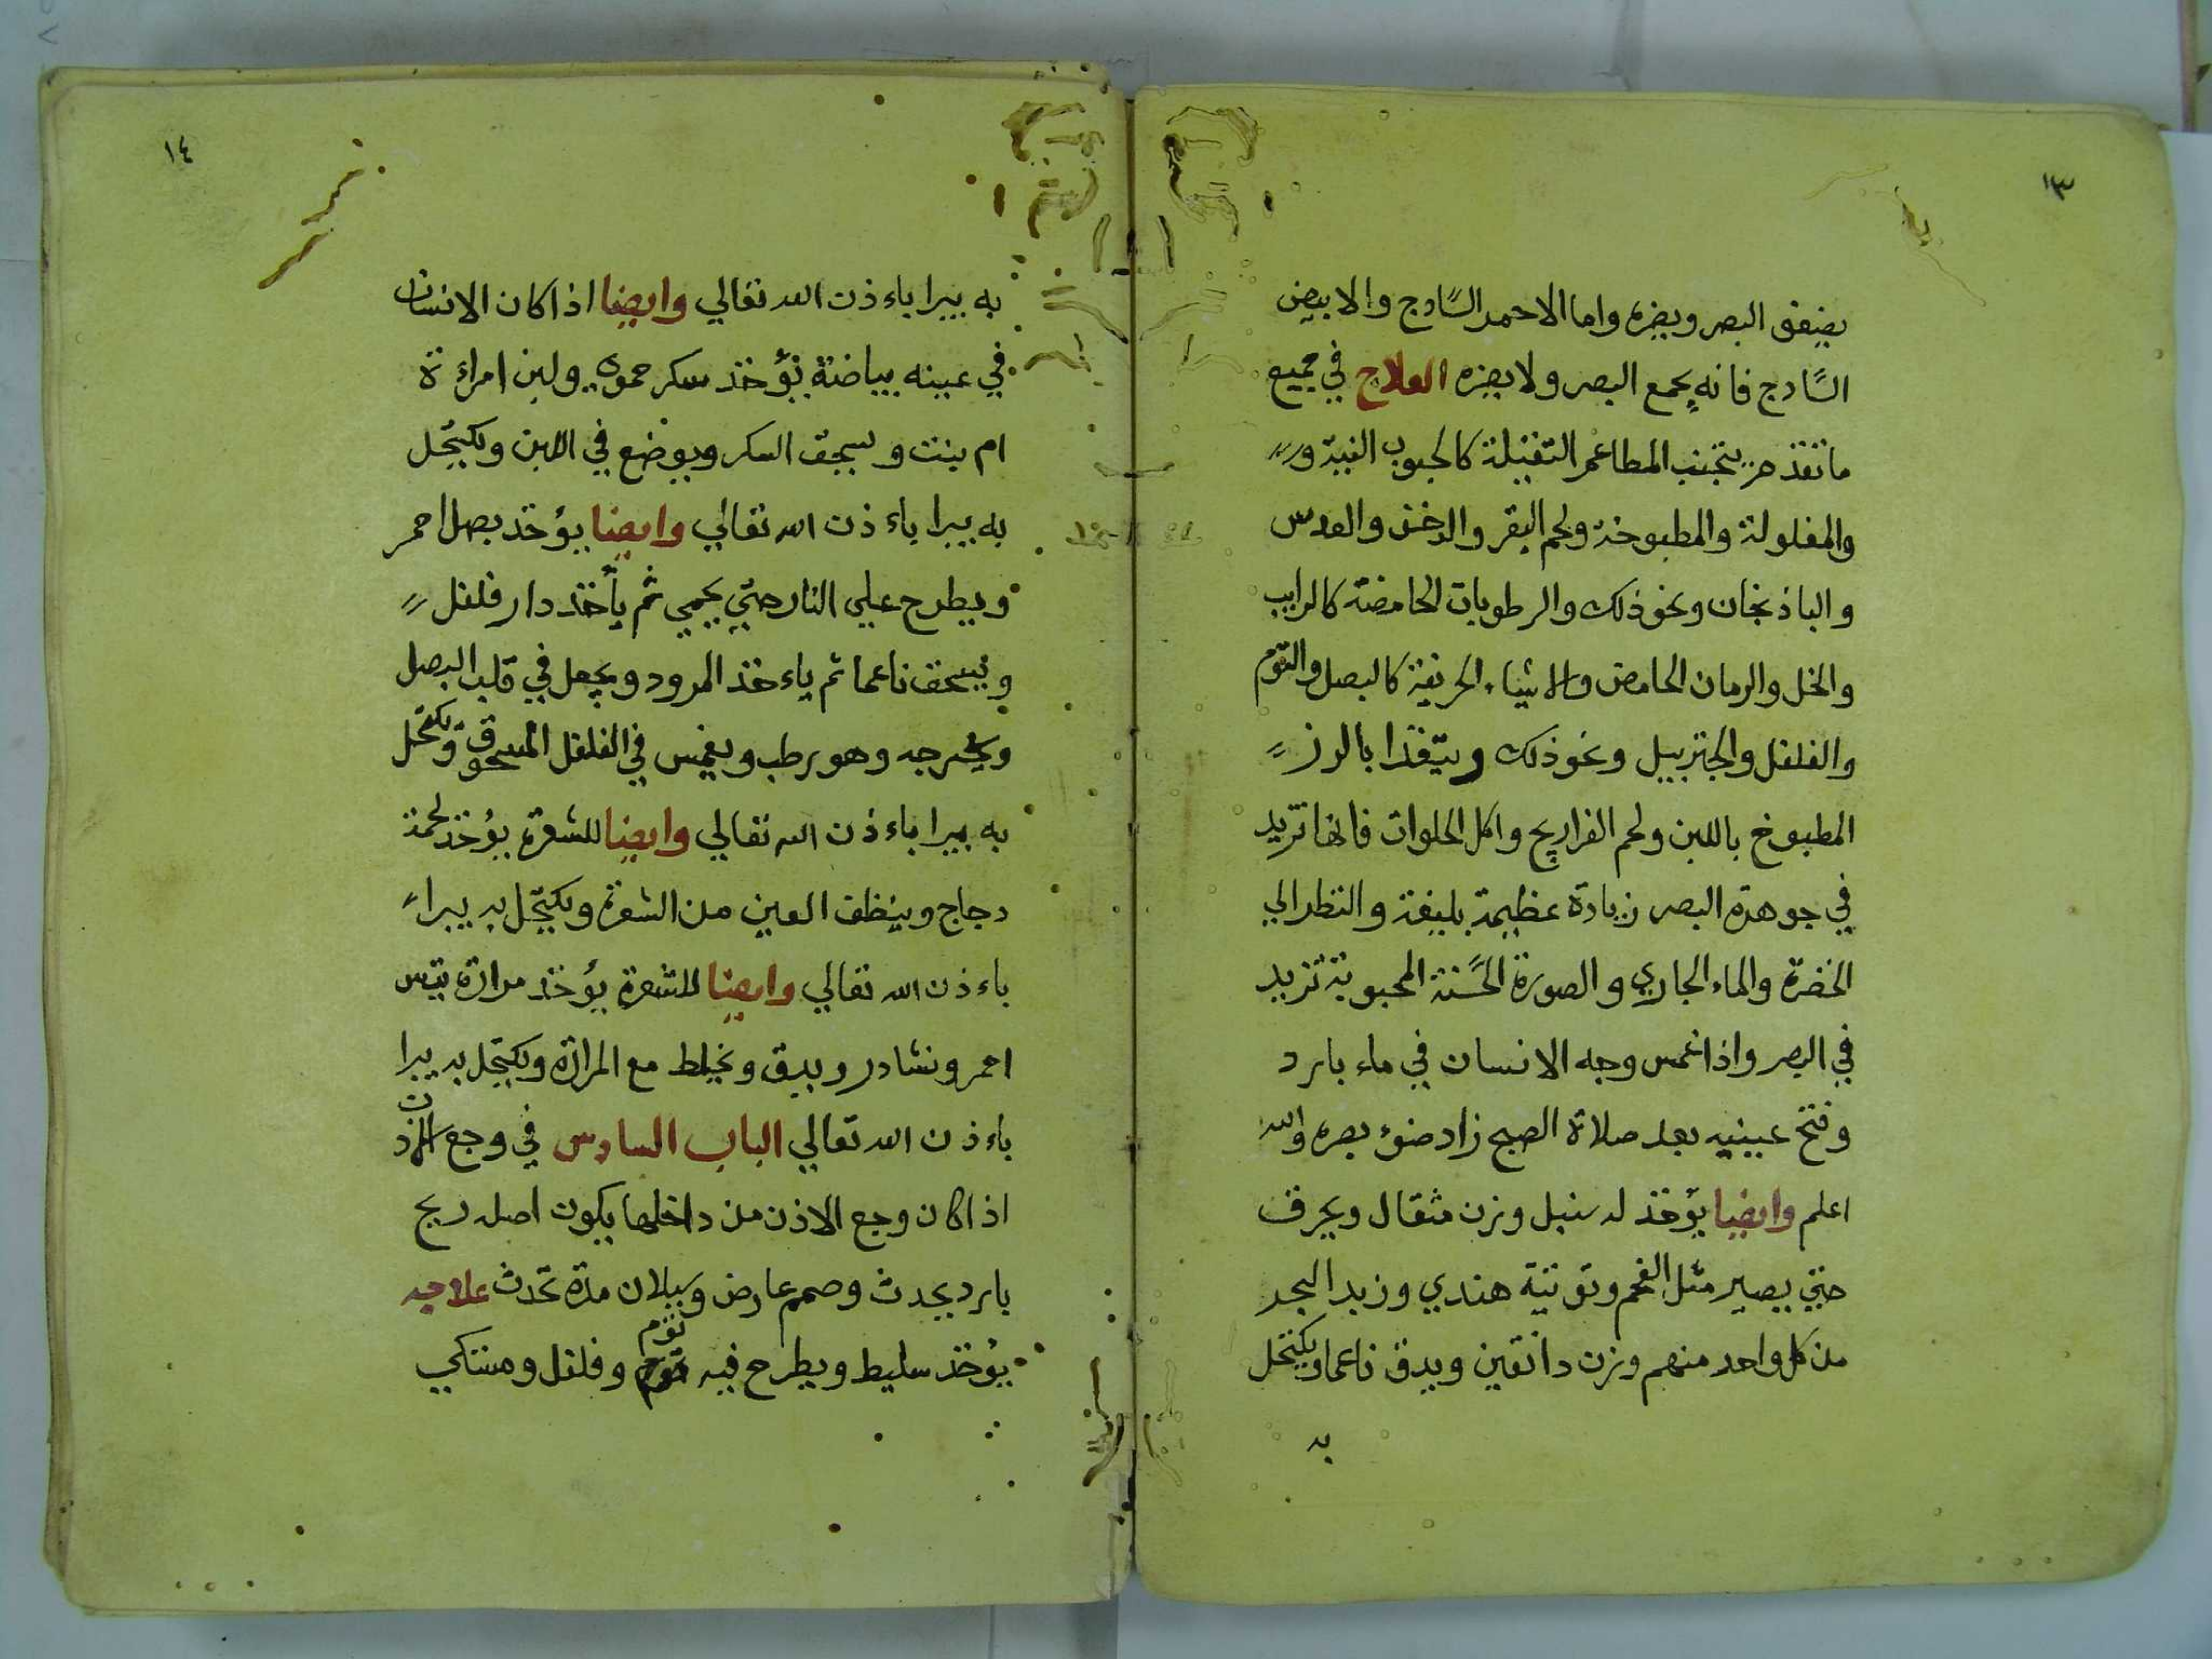 ١٣
يضيق البصر ويضره واما الاحمر السادج والابيض
السادج فانه يجمع البصر ولا يضره العلاج في جميع
ما تقدم يتجنب المطاعم الثقيلة كالحبوب النية و
والمقلولة والمطبوخة ولحم البقر والدخن والعدس
والباذنجان ونحو ذلك والرطوبات الحامضة كالرايب
والخل والرمان الحامض والاشياء الحريفة كالبصل والثوم
والفلفل والجنزبيل ونحو ذلك ويتغذا بالرز
المطبوخ باللبن ولحم الفراريج واكل الحلوات فانها تزيد
في جوهرة البصر زيادة عظيمة بليغة والنظر الي
الخضرة والماء الجاري والصورة الحسنة المحبوبة تزيد
في البصر واذا غمس وجه الانسان في ماء بارد
وفتح عينيه بعد صلاة الصبح زاد ضوء بصره والله
اعلم وايضا يؤخذ له سنبل وزن مثقال ويحرق
حتي يصير مثل الفحم وتوتية هندي وزبد البحر
من كل واحد منهم وزن دانقين ويدق ناعما ويكتحل
به
١٤
به يبرا باءذن الله تعالي وايضا اذا كان الانسان
في عينه بياضة يؤخذ سكر حموي ولبن امراءة
ام بنت ويسحق السكر ويوضع في اللبن ويكتحل
به يبرا باءذن الله تعالي وايضا يؤخذ بصل احمر
ويطرح علي النار حتي يحمي ثم يأخذ دار فلفل
ويسحق ناعما ثم ياءخذ المرود ويجعل في قلب البصل
ويخرجه وهو رطب ويغمس في الفلفل المسحوق ويكتحل
به يبرا باءذن الله تعالي وايضا للشعرة يؤخذ لحمة
دجاج وينظف العين من الشعرة ويكتحل به يبراء
باءذن الله تعالي وايضا للشعرة يؤخذ مرارة تيس
احمر ونشادر ويدق ويخلط مع المرارة ويكتحل به يبرا
باءذن الله تعالي الباب السادس في وجع الاذن
اذا كان وجع الاذن من داخلها يكون اصله ريح
بارد يحدث وصمم عارض وسيلان مدة تحدث علاجه
يؤخذ سليط ويطرح فيه ثوم وفلفل ومستكي